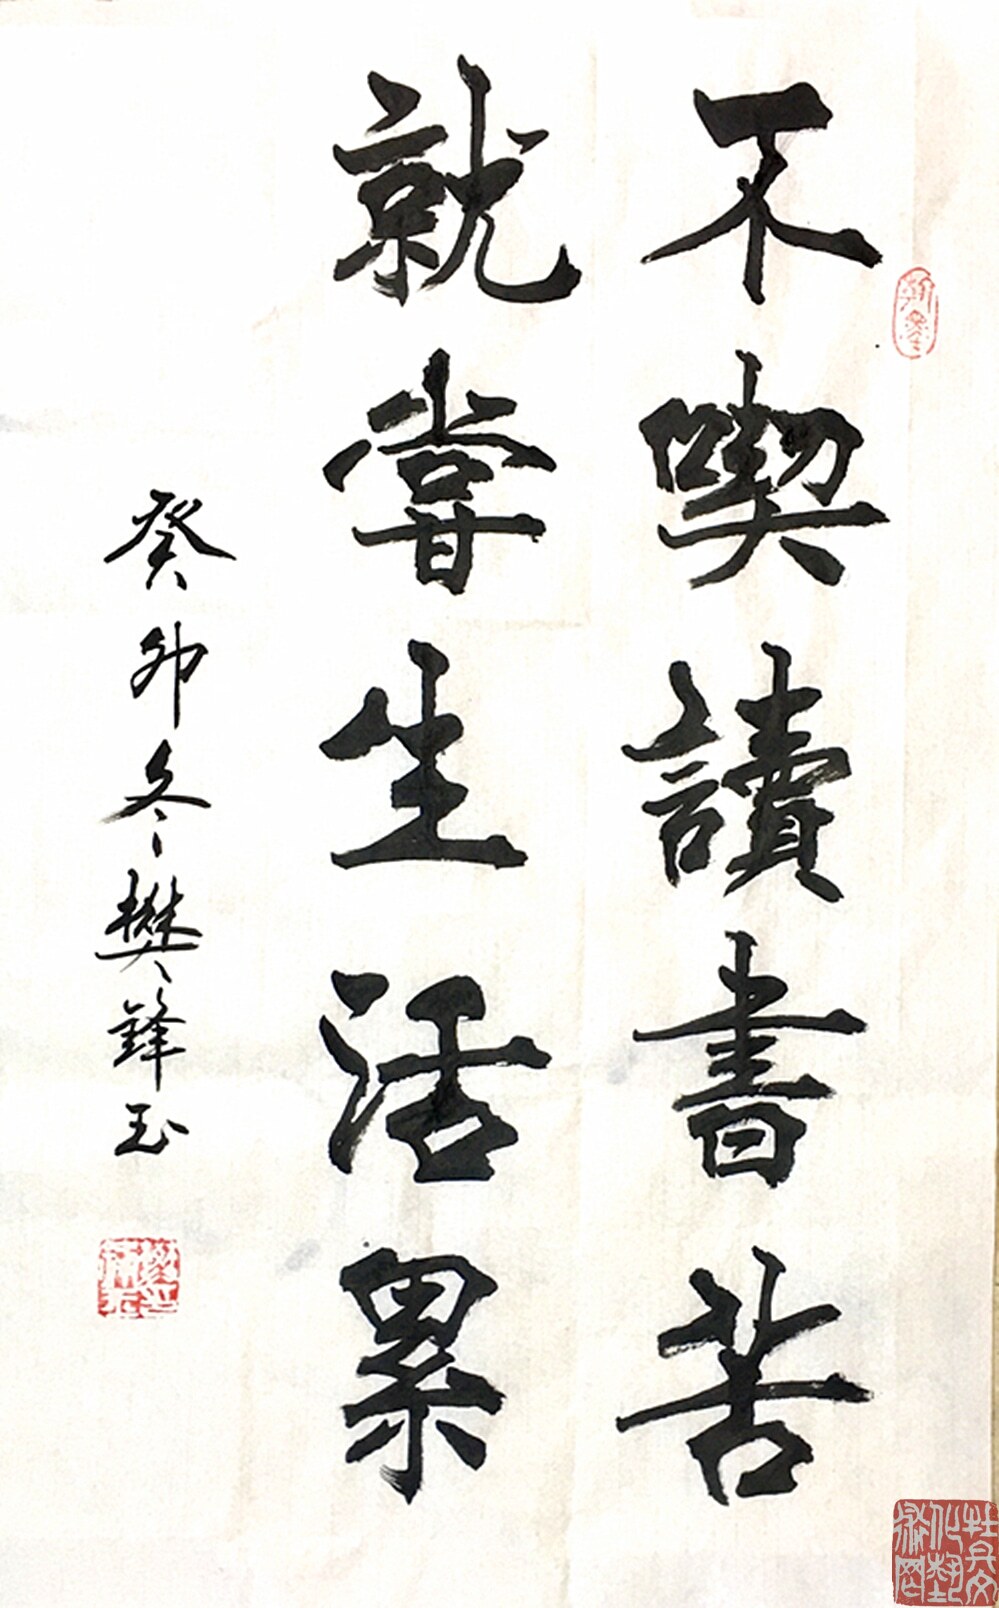 不喫讀書苦
就嘗生活累
癸卯冬樊鋒玉